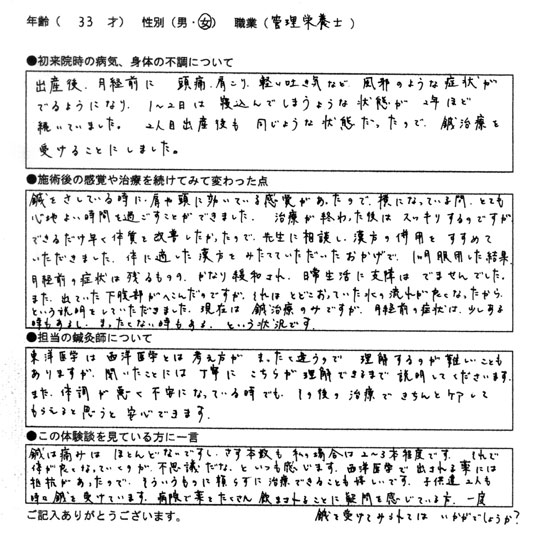 年齢（ 33 才） 性別（男・女） 職業（管理栄養士）
●初来院時の病気、身体の不調について
出産後、月経前に 頭痛、肩こり、軽い吐き気など、風邪のような症状が
でるようになり、1～2日は 寝込んでしまうような 状態が 2年ほど
続いていました。 2人目出産後も 同じような 状態だったので、鍼治療を
受けることに しました。
●施術後の感覚や治療を続けてみて変わった点
鍼をさしている時に、肩や頭に効いている感覚があったので、横になっている間、とても
心地よい時間を過ごすことができました。 治療が終わった後は スッキリするのですが
できるだけ早く体質を改善したかったので、先生に相談し、漢方の併用を すすめて
いただきました。体に適した漢方を みたてていただいたおかげで、1ヶ月服用した結果、
月経前の症状は残るものの、かなり緩和され、日常生活に支障は でませんでした。
また、出ていた下腹部がへこんだのですが、それは とどこおっていた水の流れが良くなったから、
という説明をしていただきました。現在は 鍼治療のみですが、月経前の症状は、少しある
時もあるし、まったくない時もある、という状況です。
●担当の鍼灸師について
東洋医学は西洋医学とは考え方が まったく違うので 理解するのが難しいことも
ありますが、聞いたことには 丁寧に こちらが理解できるまで 説明してくださいます。
また、体調が悪く不安になっている時でも、その後の治療できちんとケアして
もらえると思うと 安心できます。
●この体験談を見ている方に一言
鍼は痛みは ほとんどないですし、さす本数も 私の場合は 2～3本程度です。 それで
体が良くなっていくのが、不思議だな、といつも感じます。西洋医学で出される薬には
抵抗があったので、そういうものに頼らずに治療できることも嬉しいです。子供達2人も
時々鍼を受けています。病院で薬をたくさん飲まされることに疑問を感じている方、一度
鍼を受けてみられては いかがでしょうか？
ご記入ありがとうございます。